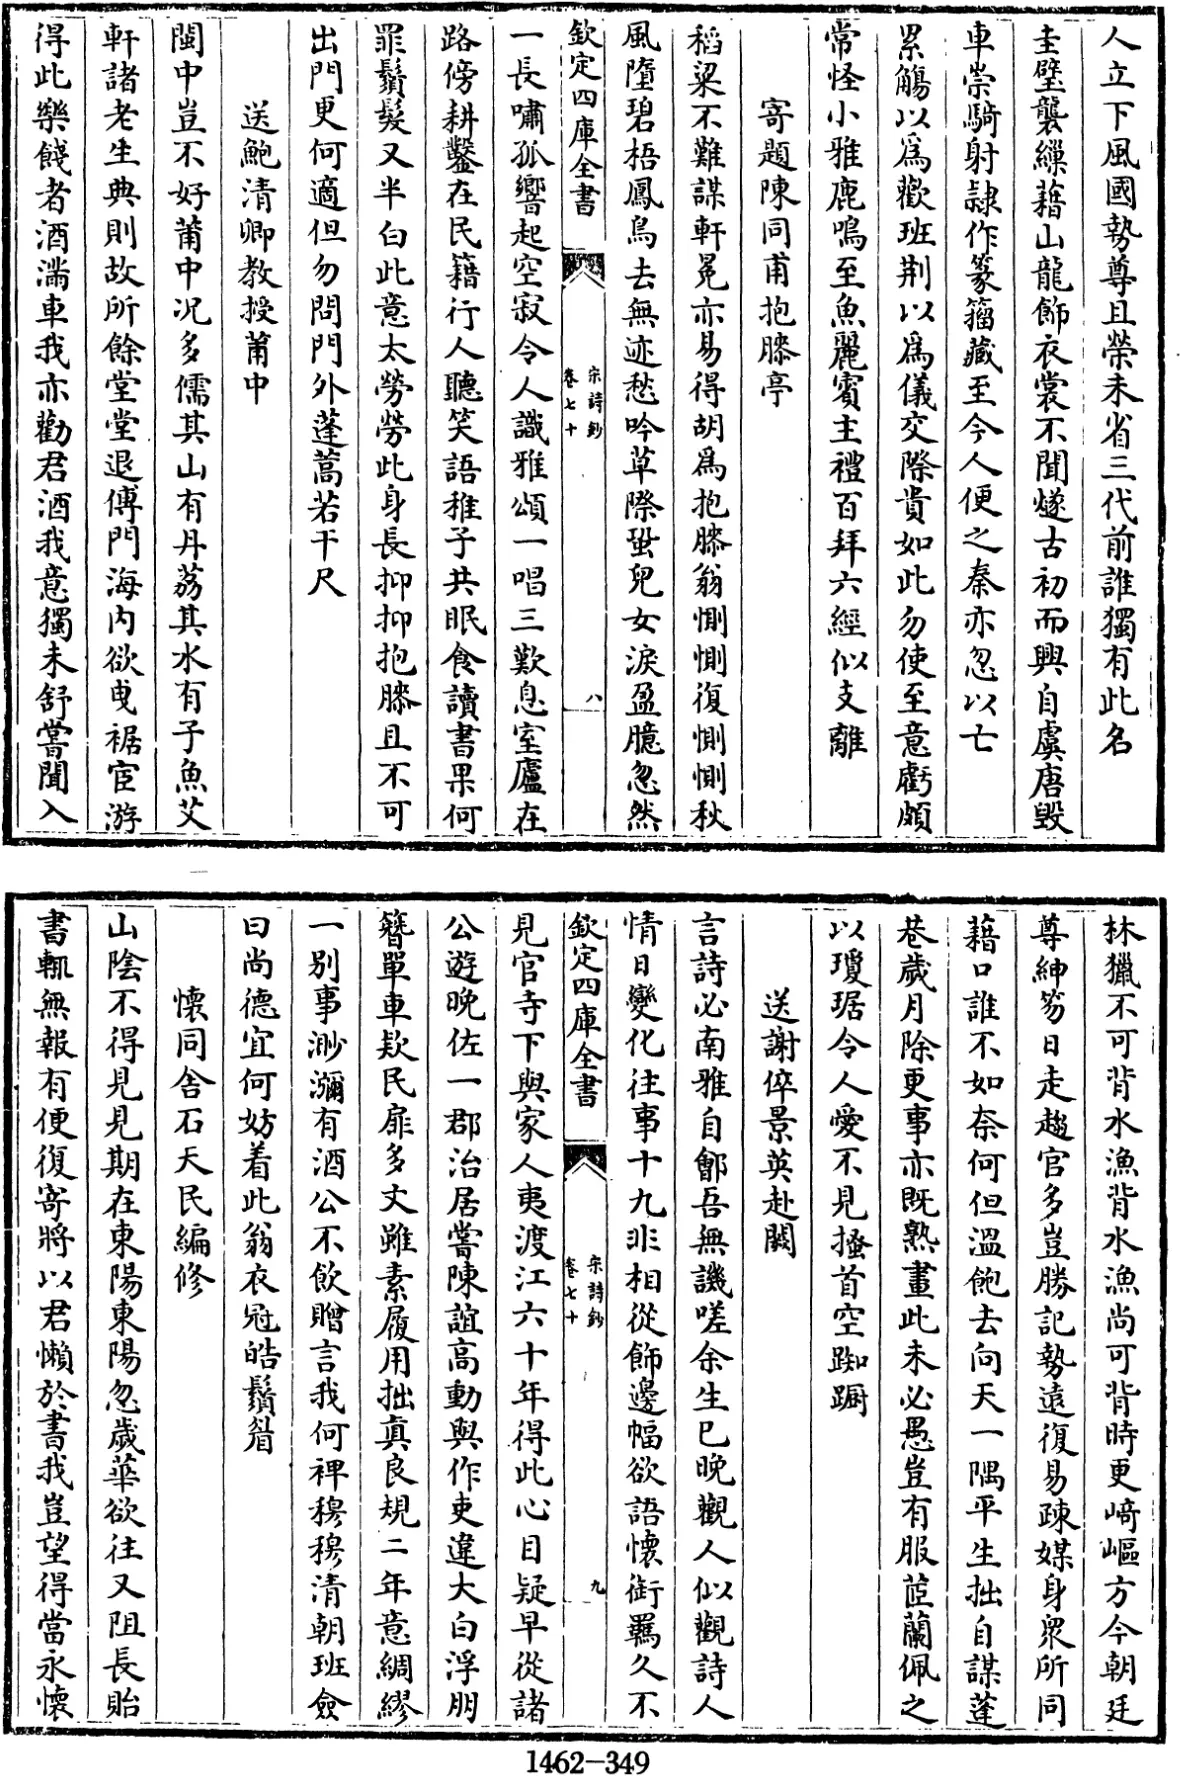 人立下風國勢尊且榮未省三代前誰獨有此名
圭璧襲繅藉山龍飾衣裳不聞燧古初而興自虞唐毀
車崇騎射隷作篆籀藏至今人便之秦亦忽以亡
累觴以爲歡班荆以爲儀交際貴如此勿使至意虧頗
常怪小雅鹿鳴至魚麗賓主禮百拜六經似支離
寄題陳同甫抱膝亭
稻粱不難謀軒冕亦易得胡爲抱膝翁惻惻復惻惻秋
風墮碧梧鳳鳥去無迹愁吟草際蛩兒女淚盈臆忽然
欽定四庫全書
宋詩鈔
卷七十
八
一長嘯孤響起空寂令人識雅頌一唱三歎息室廬在
路傍耕鑿在民籍行人聽笑語稚子共眠食讀書果何
罪鬚髮又半白此意太勞勞此身長抑抑抱膝且不可
出門更何適但勿問門外蓬蒿若干尺
送鮑清卿教授莆中
閩中豈不好莆中况多儒其山有丹荔其水有子魚艾
軒諸老生典則故所餘堂堂退傅門海内欲曳裾宦游
得此樂餞者酒滿車我亦勸君酒我意獨未舒嘗聞入
林獵不可背水漁背水漁尚可背時更崎嶇方今朝廷
尊紳笏日走趨官多豈勝記勢遠復易疎媒身衆所同
藉口誰不如奈何但溫飽去向天一隅平生拙自謀蓬
巷歲月除更事亦既熟畫此未必愚豈有服茝蘭佩之
以瓊琚令人愛不見搔首空踟蹰
送謝倅景英赴闕
言詩必南雅自鄶吾無譏嗟余生已晚觀人似觀詩人
情日變化往事十九非相從飾邊幅欲語懷銜羈久不
欽定四庫全書
宋詩鈔
卷七十
九
見官寺下與家人夷渡江六十年得此心目疑早從諸
公遊晚佐一郡治居嘗陳誼高動與作吏違大白浮朋
簪單車欵民扉多丈雖素履用拙真良規二年意綢繆
一别事渺瀰有酒公不飲贈言我何裨穆穆清朝班僉
曰尚德宜何妨着此翁衣冠皓鬚眉
懷同舍石天民編修
山陰不得見見期在東陽東陽忽歲華欲往又阻長貽
書輒無報有便復寄將以君懶於書我豈望得當永懷
1462-349